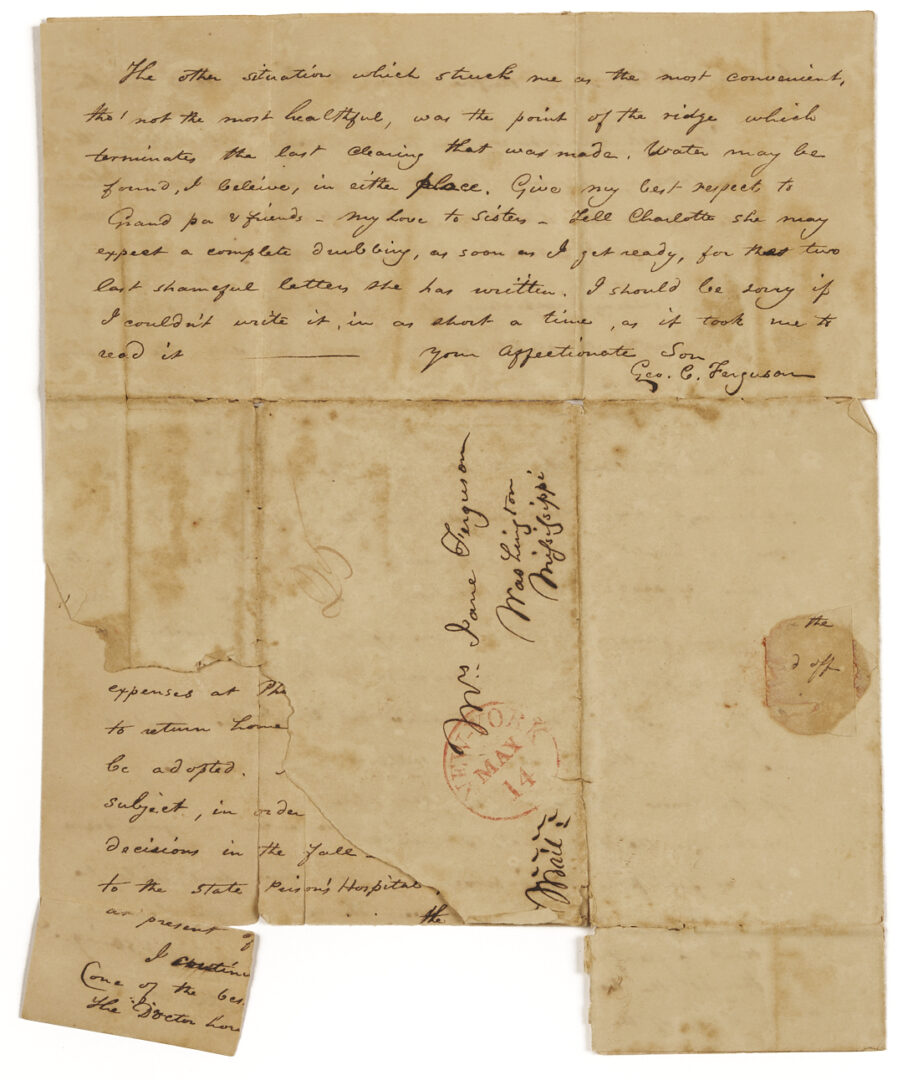 The other situation which struck me as the most convenient,
tho' not the most healthful, was the point of the ridge which
terminates the last clearing that was made. Water may be
found, I beleive, in either place. Give my best respect to
Grand pa & friends - My Love to Sisters - Tell Charlotte she may
expect a complete drubbing, as soon as I get ready, for the two
last shameful letters she has written. I should be sorry if
I couldn't write it, in as short a time, as it took me to
read it
your affectionate Son
Geo. C. Ferguson
Mrs. Jane Ferguson
Washington
Mississippi
NEW-YORK
MAY
14
Mail
the
d off
expenses at Ph
to return home
be adopted.
subject, in order
decisions in the fall -
to the State Prison's Hospital,
the
as present of
I
(one of the bes
the Doctor